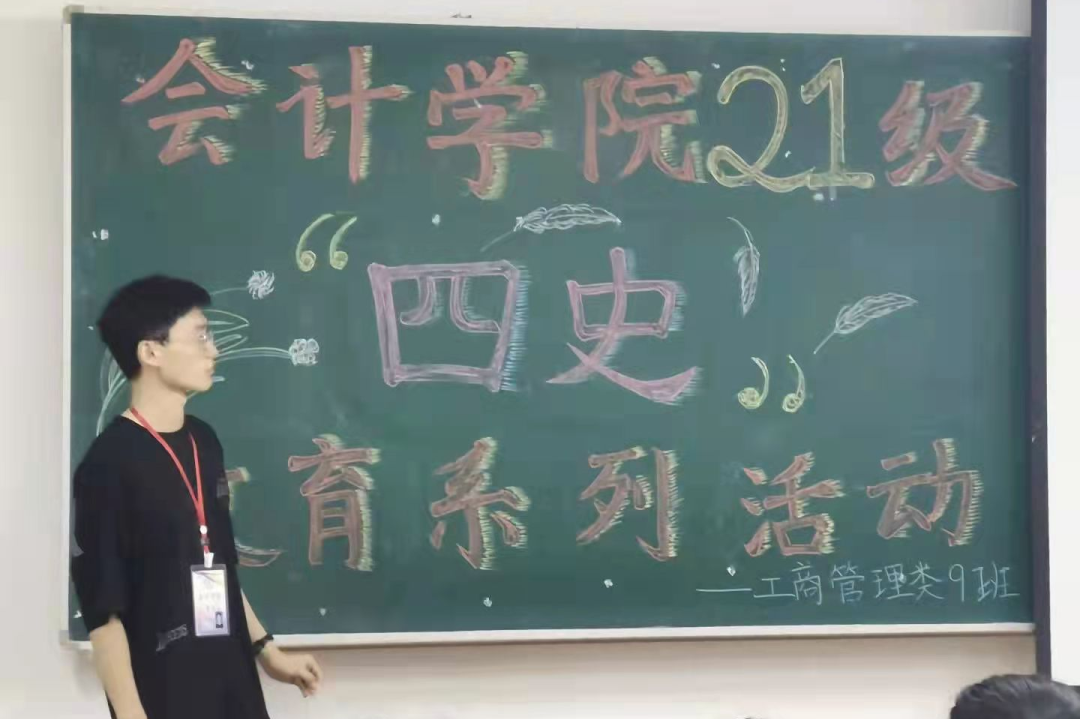 会计学院21级
“四史”
育系列活动
——工商管理类9班